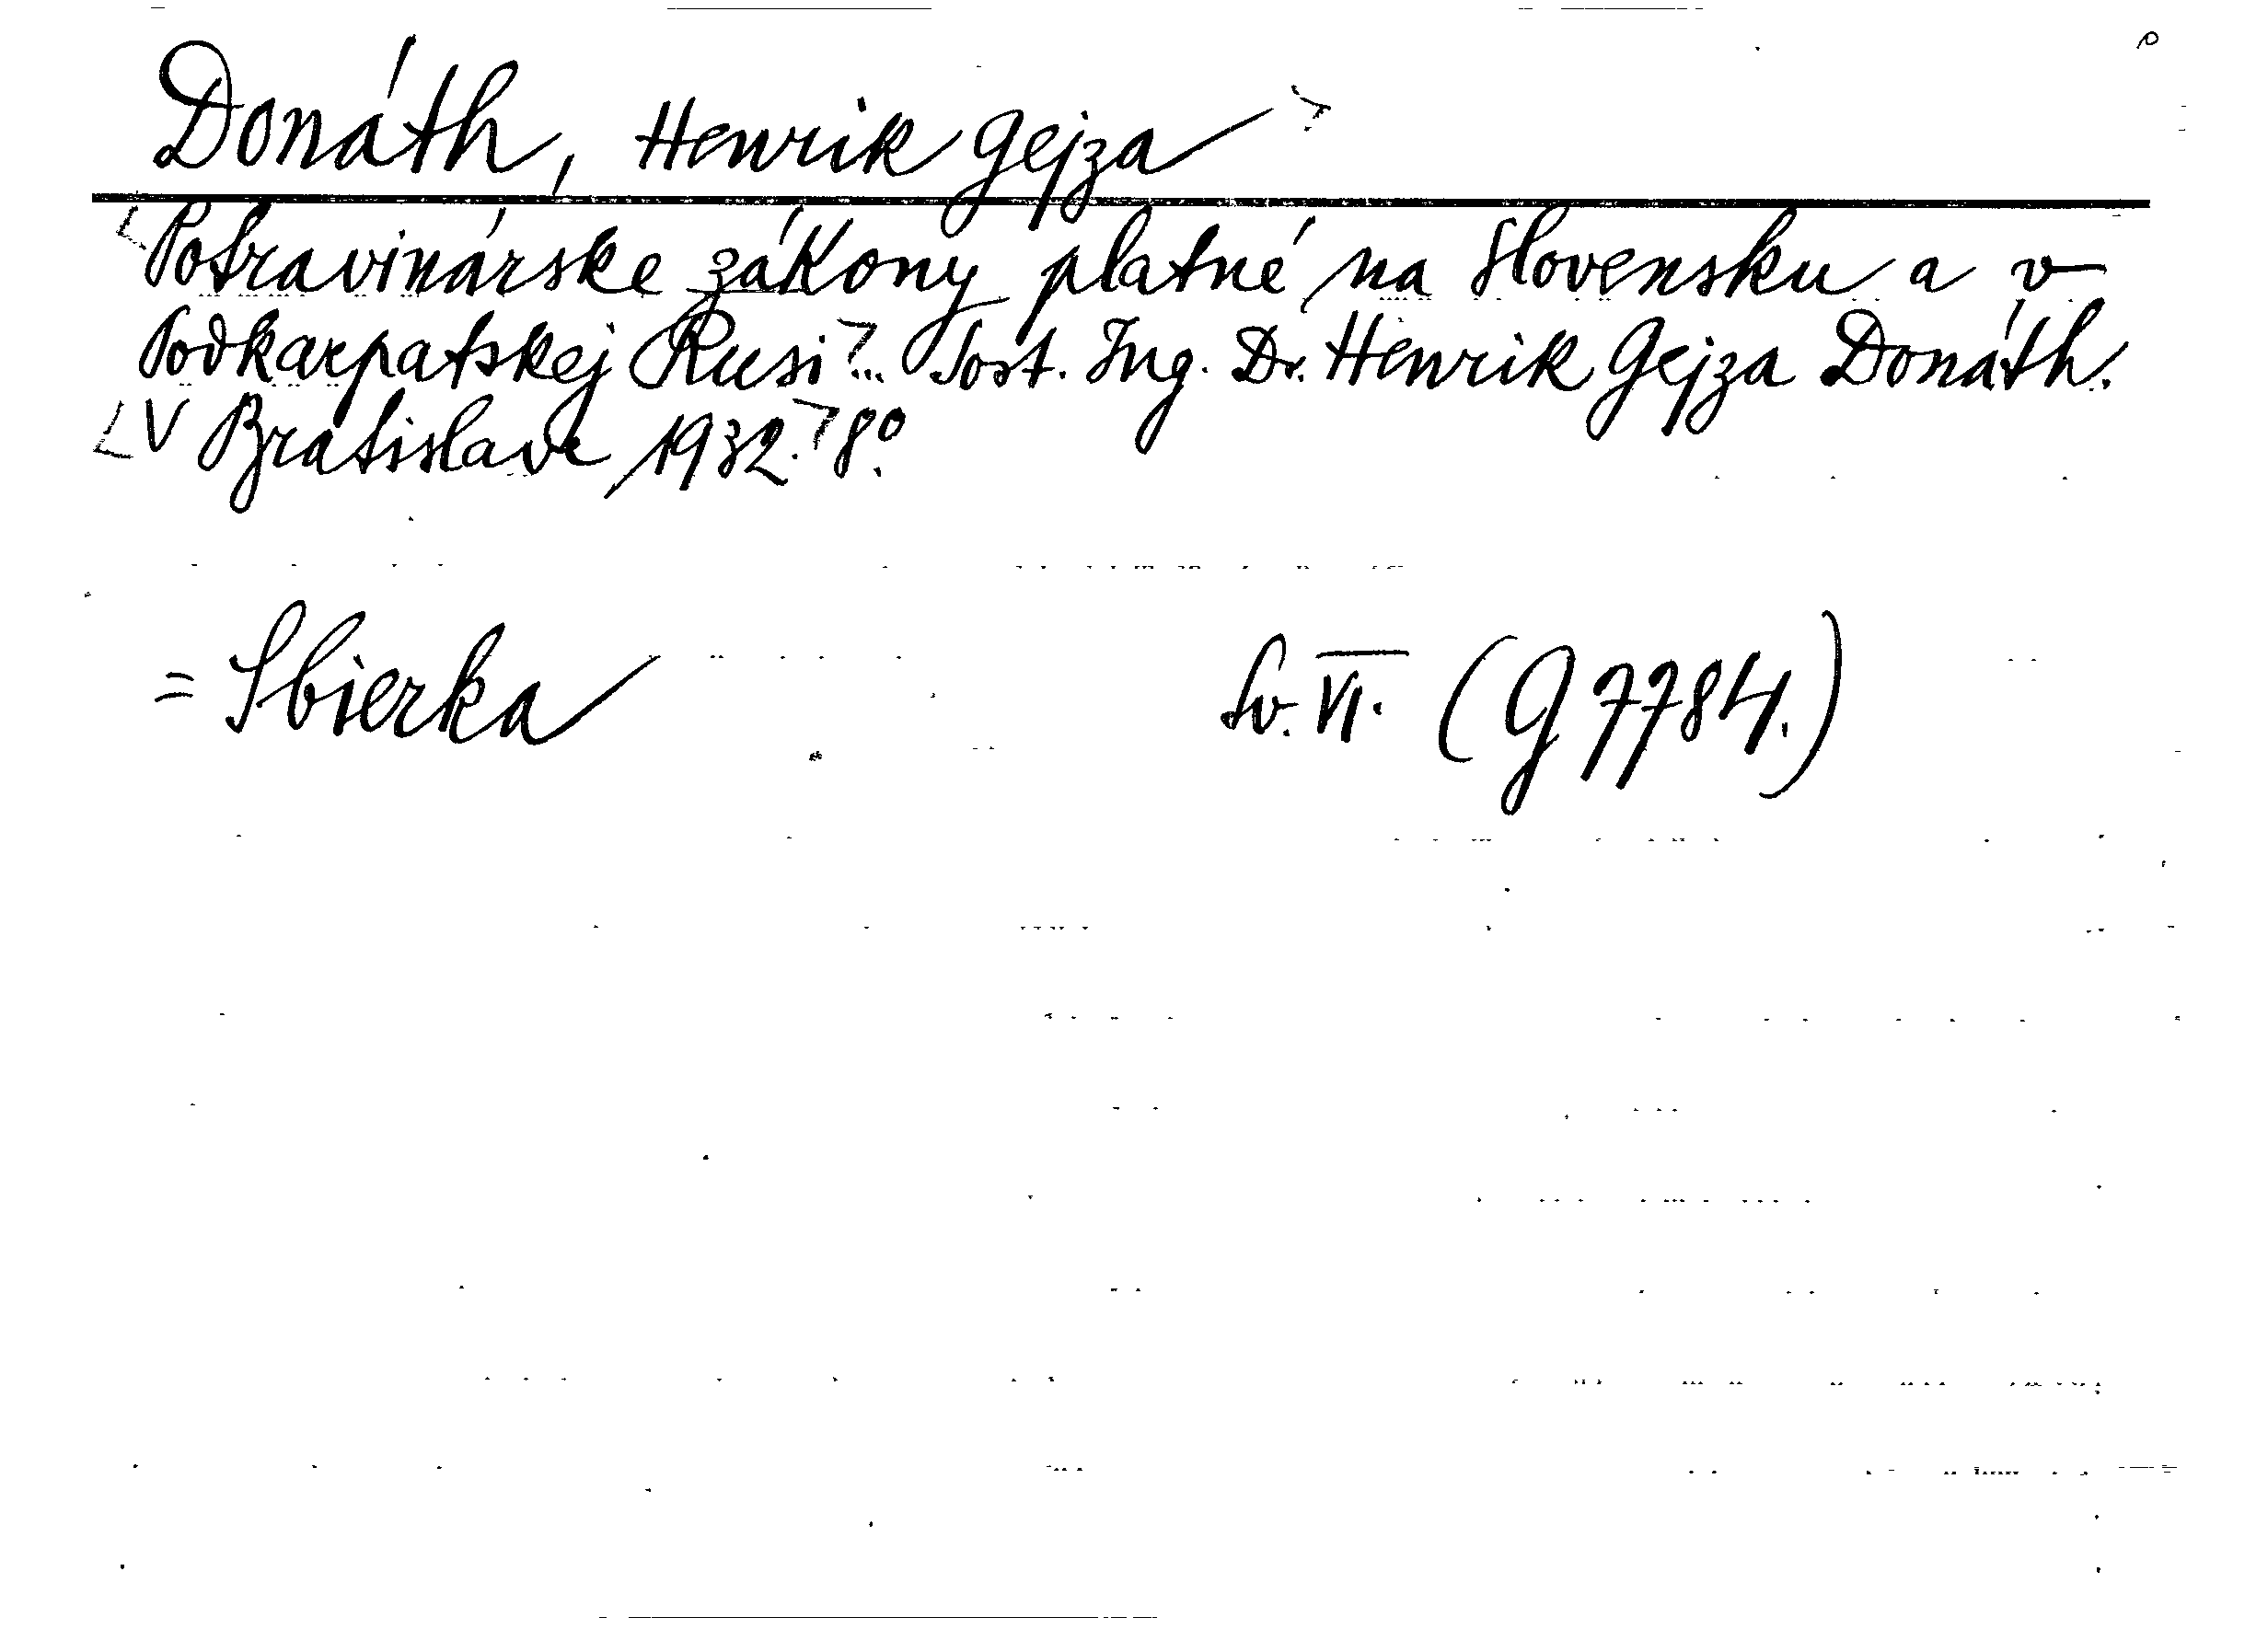 Donáth, Henrik Gejza
Potravinárske zákony platné na Slovensku a v
Podkarpatskej Rusi... Sost. Ing. Dr. Henrik Gejza Donáth.
V Bratislave 1932. 8°.
= Sbierka Sv. VI. (G 7784.)